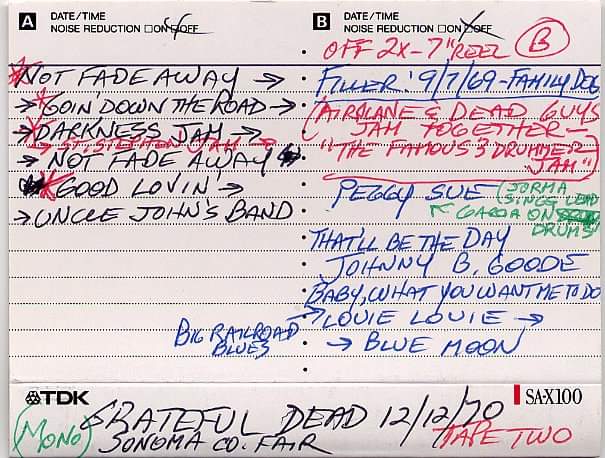 A DATE/TIME
NOISE REDUCTION □ON □OFF
*NOT FADE AWAY →
→ *GOIN' DOWN THE ROAD →
→ *DARKNESS JAM →
→ ST. STEPHEN JAM →
→ NOT FADE AWAY
*GOOD LOVIN' →
→ UNCLE JOHN'S BAND
B DATE/TIME
NOISE REDUCTION □ON □OFF
OFF 2X-7" REEL B
FILLER: 9/7/69-FAMILY DOG
(AIRPLANE & DEAD GUYS
JAM TOGETHER-
"THE FAMOUS 3 DRUMMER
JAM")
PEGGY SUE (JORMA
SINGS LEAD
GARCIA ON
DRUMS)
THAT'LL BE THE DAY
JOHNNY B. GOODE
BABY, WHAT YOU WANT ME TO DO
BIG RAILROAD
BLUES
→ LOUIE LOUIE →
→ BLUE MOON
TDK SA-X100
(MONO) GRATEFUL DEAD 12/12/70
SONOMA CO. FAIR TAPE TWO